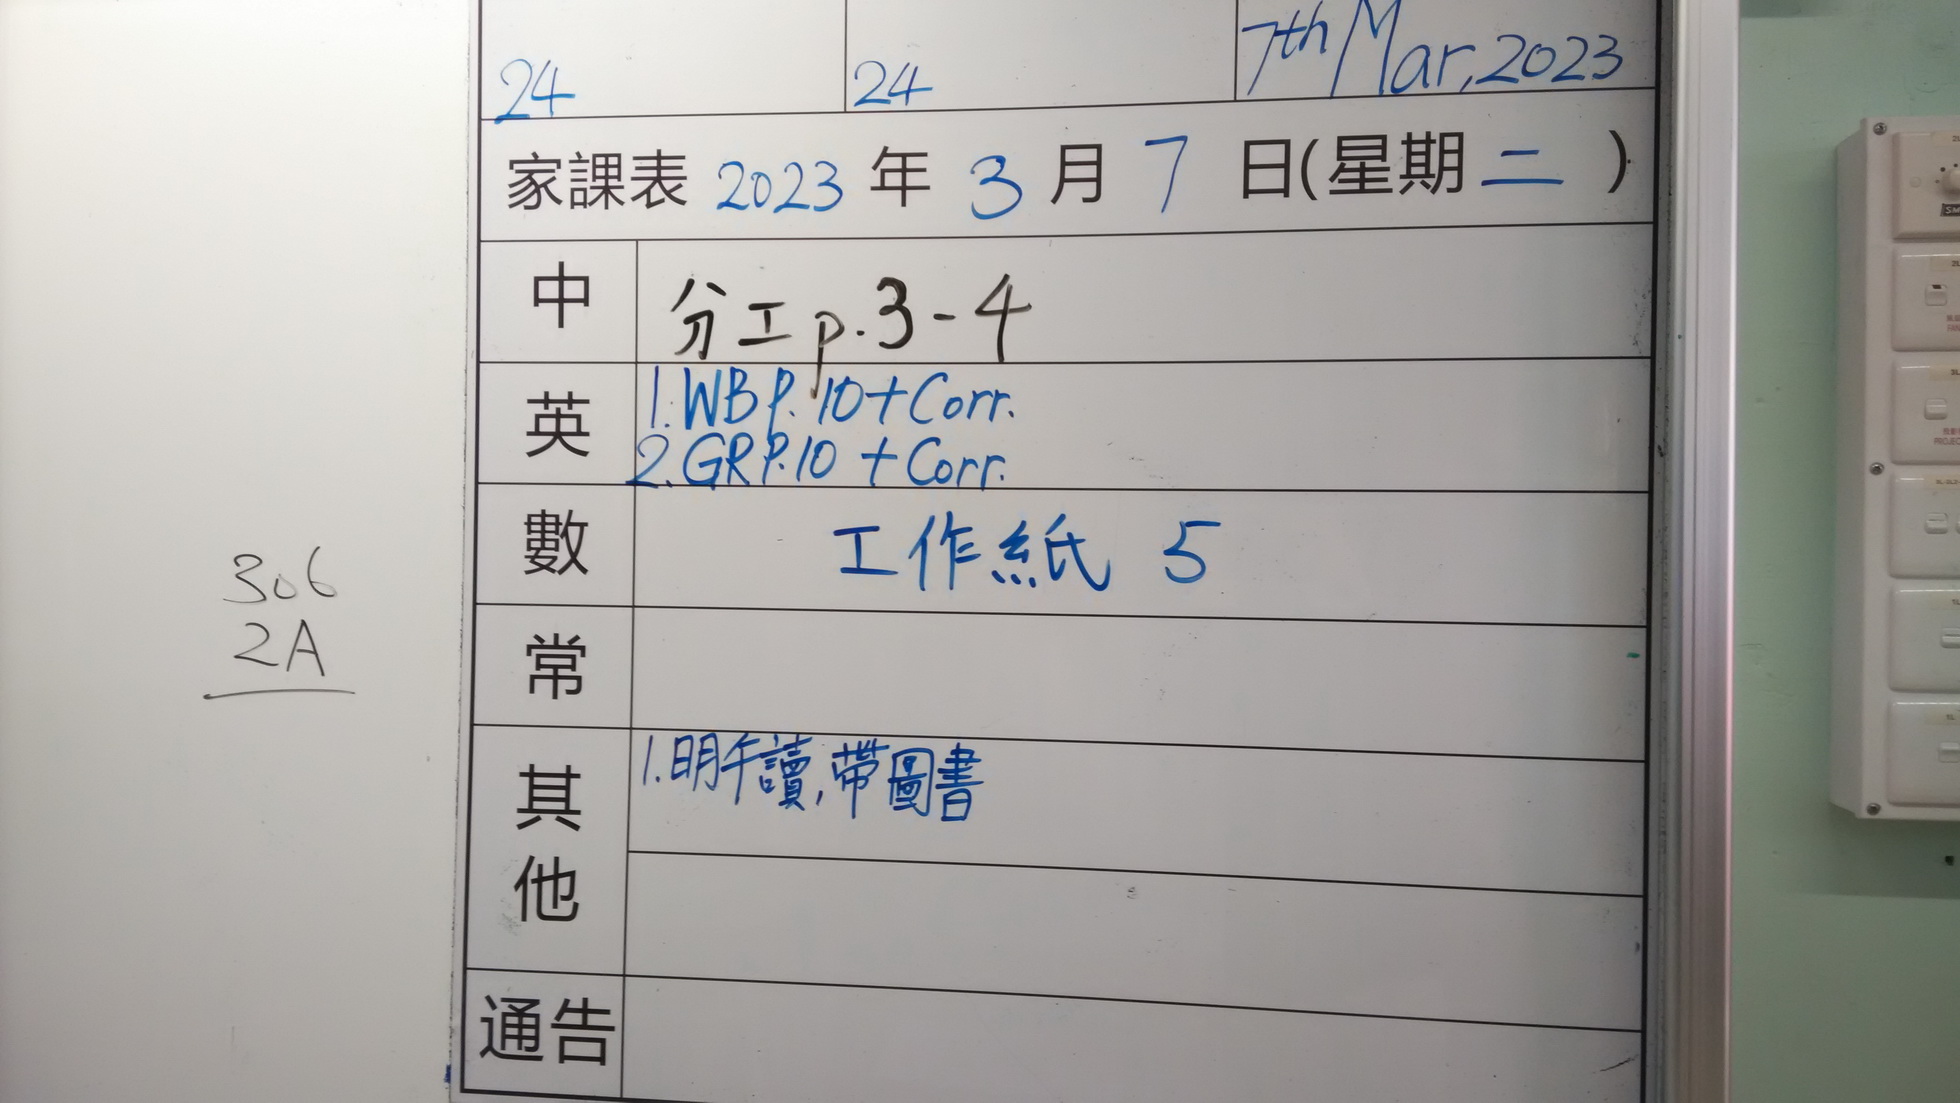 24
24
7th Mar, 2023
家課表 2023 年 3 月 7 日(星期 二 )
中
分工 p.3-4
英
1. WB P. 10 + Corr.
2. GR P.10 + Corr.
數
工作紙 5
306
2A
常
其他
1. 明午讀, 帶圖書
通告